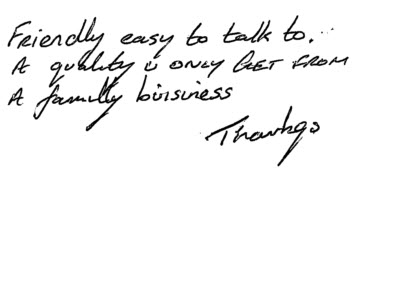 Friendly easy to talk to...
A quality u only GET FROM
A family buisiness
Thanks